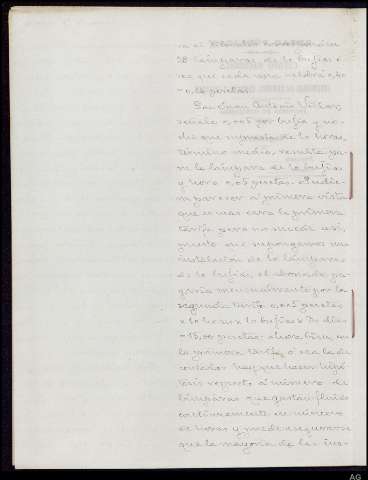 28 lámparas de 10 bujías
vez que cada una
pesetas.
Don Juan Antonio
señala 0,005 por bujía y no-
che que de 10 horas,
término medio, resulta pa-
ra la lámpara de 10 bujías
y hora 0,05 pesetas. Pudie-
ra parecer á primera vista
que es mas cara la primera
tarifa pero no sucede así,
puesto que supongamos una
instalación de 10 lámparas
de 10 bujías, el abonado pa-
garía mensualmente por la
segunda tarifa 0,005 pesetas
x 10 x 10 bujías x 30 días
= 15,00 pesetas. Ahora bien, en
la primera tarifa ó sea la de
contador hay que hacer hipó-
tesis respecto á número de
lámparas que gastan fluido
contínuamente en número
de horas y puede asegurarse
que la mayoría de las
AG